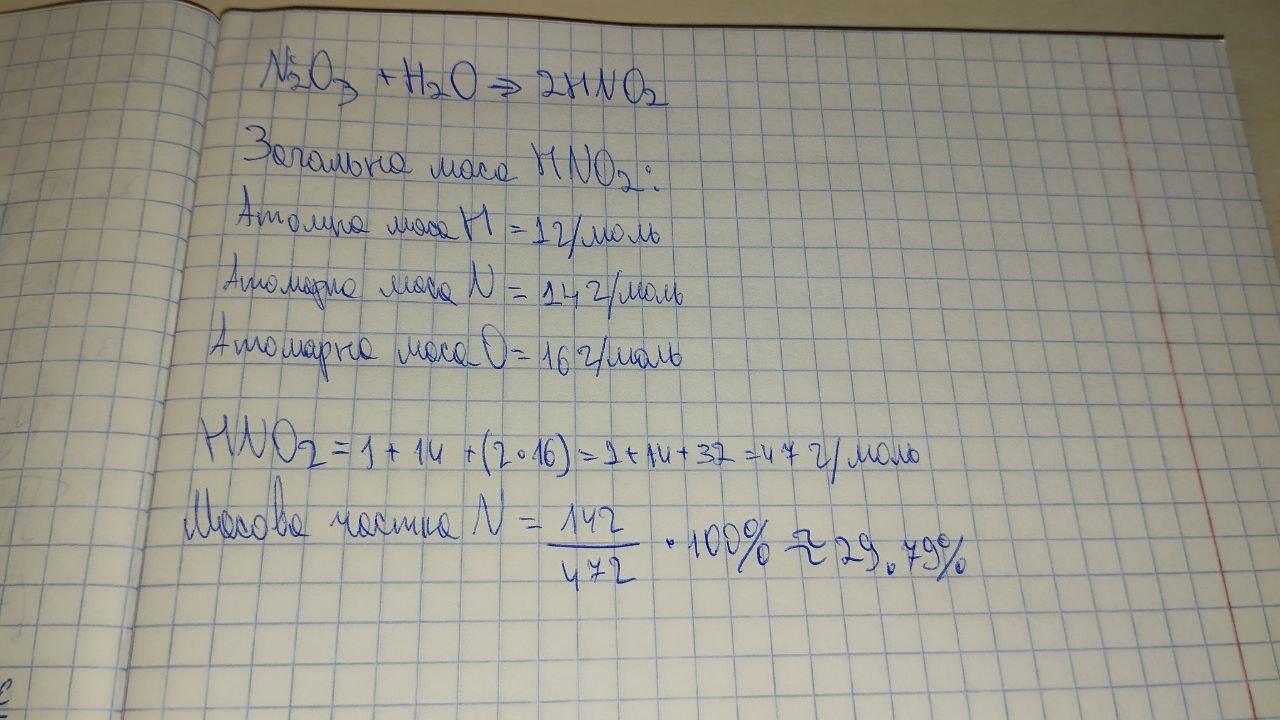 N2O3 + H2O → 2HNO2
Загальна маса HNO2:
Атомна маса H = 1 г/моль
Атомарна маса N = 14 г/моль
Атомарна маса O = 16 г/моль
HNO2 = 1 + 14 + (2·16) = 1 + 14 + 32 = 47 г/моль
Масова частка N = 14г / 47г · 100% ≈ 29.79%